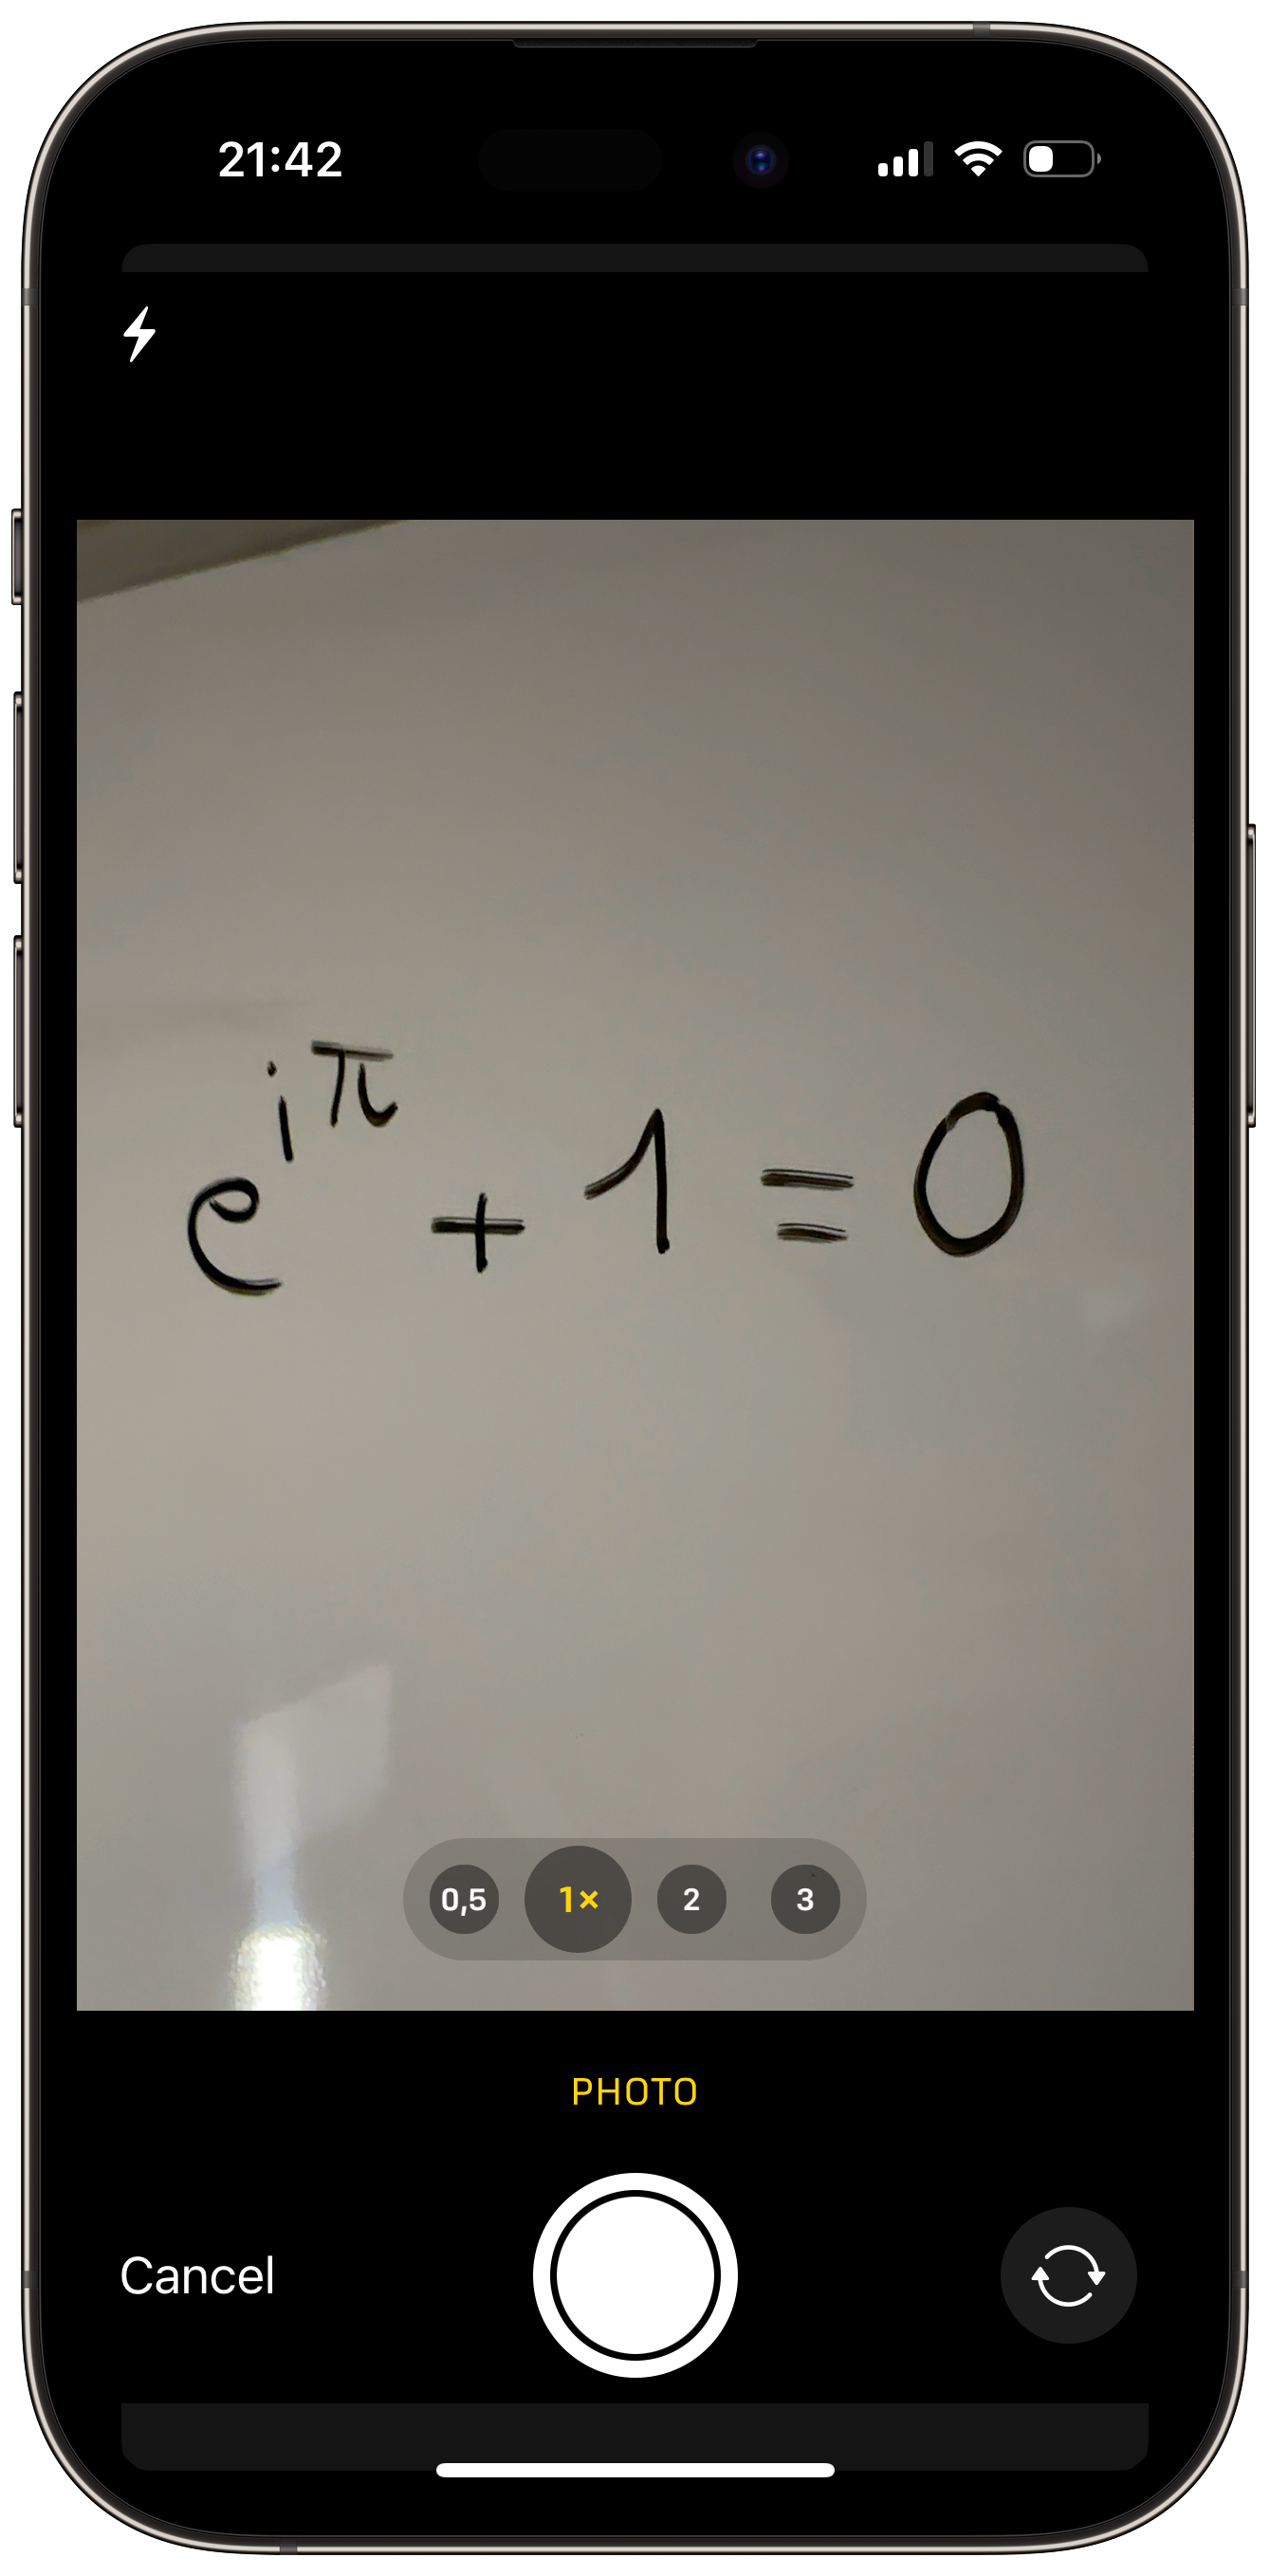 21:42
e^{iπ} + 1 = 0
0,5 1× 2 3
PHOTO
Cancel